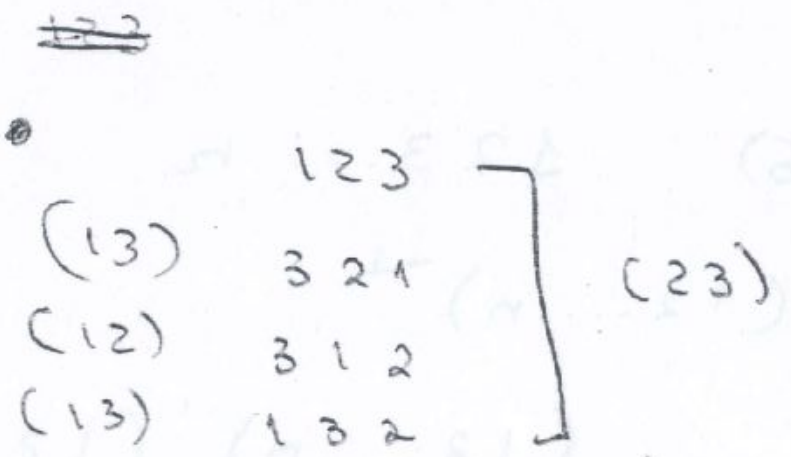 1 2 3
(13) 3 2 1 (23)
(12) 3 1 2
(13) 1 3 2